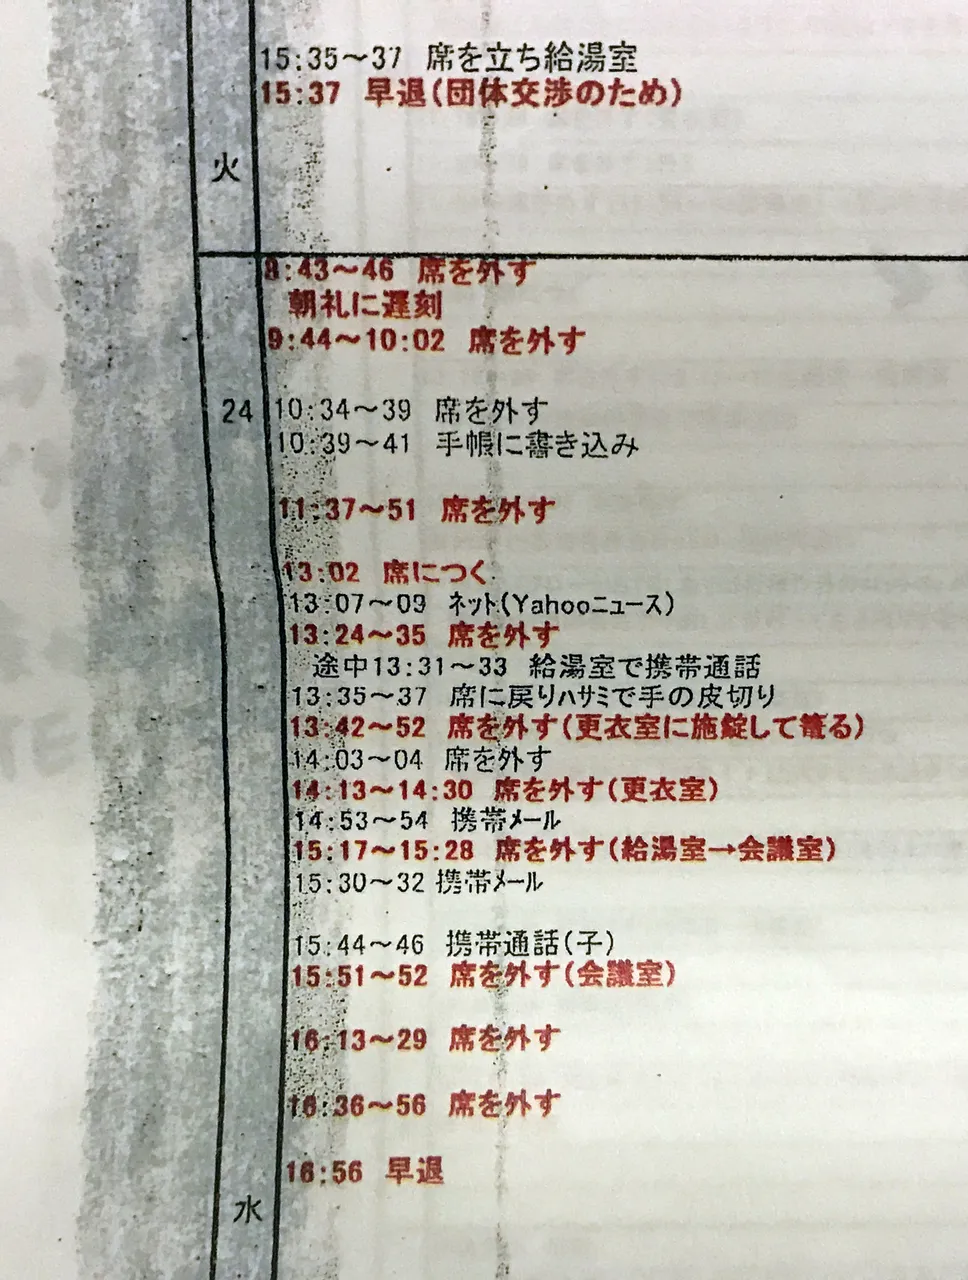 15:35～37 席を立ち給湯室
15:37 早退(団体交渉のため)
火
8:43～46 席を外す
朝礼に遅刻
9:44～10:02 席を外す
24
10:34～39 席を外す
10:39～41 手帳に書き込み
11:37～51 席を外す
13:02 席につく
13:07～09 ネット(Yahooニュース)
13:24～35 席を外す
途中13:31～33 給湯室で携帯通話
13:35～37 席に戻りハサミで手の皮切り
13:42～52 席を外す(更衣室に施錠して篭る)
14:03～04 席を外す
14:13～14:30 席を外す(更衣室)
14:53～54 携帯メール
15:17～15:28 席を外す(給湯室→会議室)
15:30～32 携帯メール
15:44～46 携帯通話(子)
15:51～52 席を外す(会議室)
16:13～29 席を外す
16:36～56 席を外す
16:56 早退
水